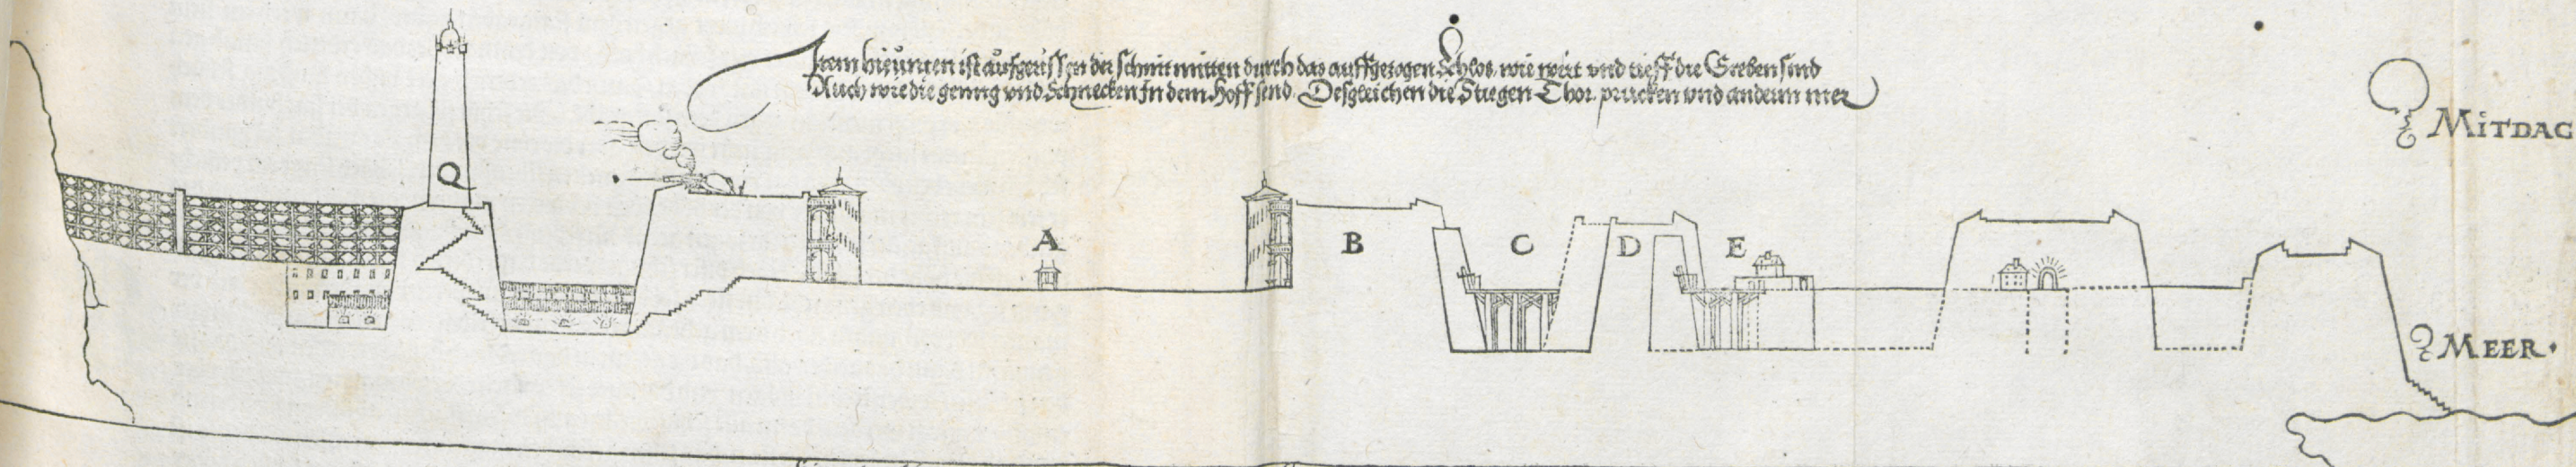 Item hieunten ist aufgerissen der schnit mitten durch das auffgezogen Schlos, wie weit vnd tieff die Greben sind
Auch wie die geung vnd Schnecken Jn dem Hoff send. Desgleichen die Stiegen Thor. prucken vnd anderm mer
MITDAG
Q
A
B
C
D
E
MEER.